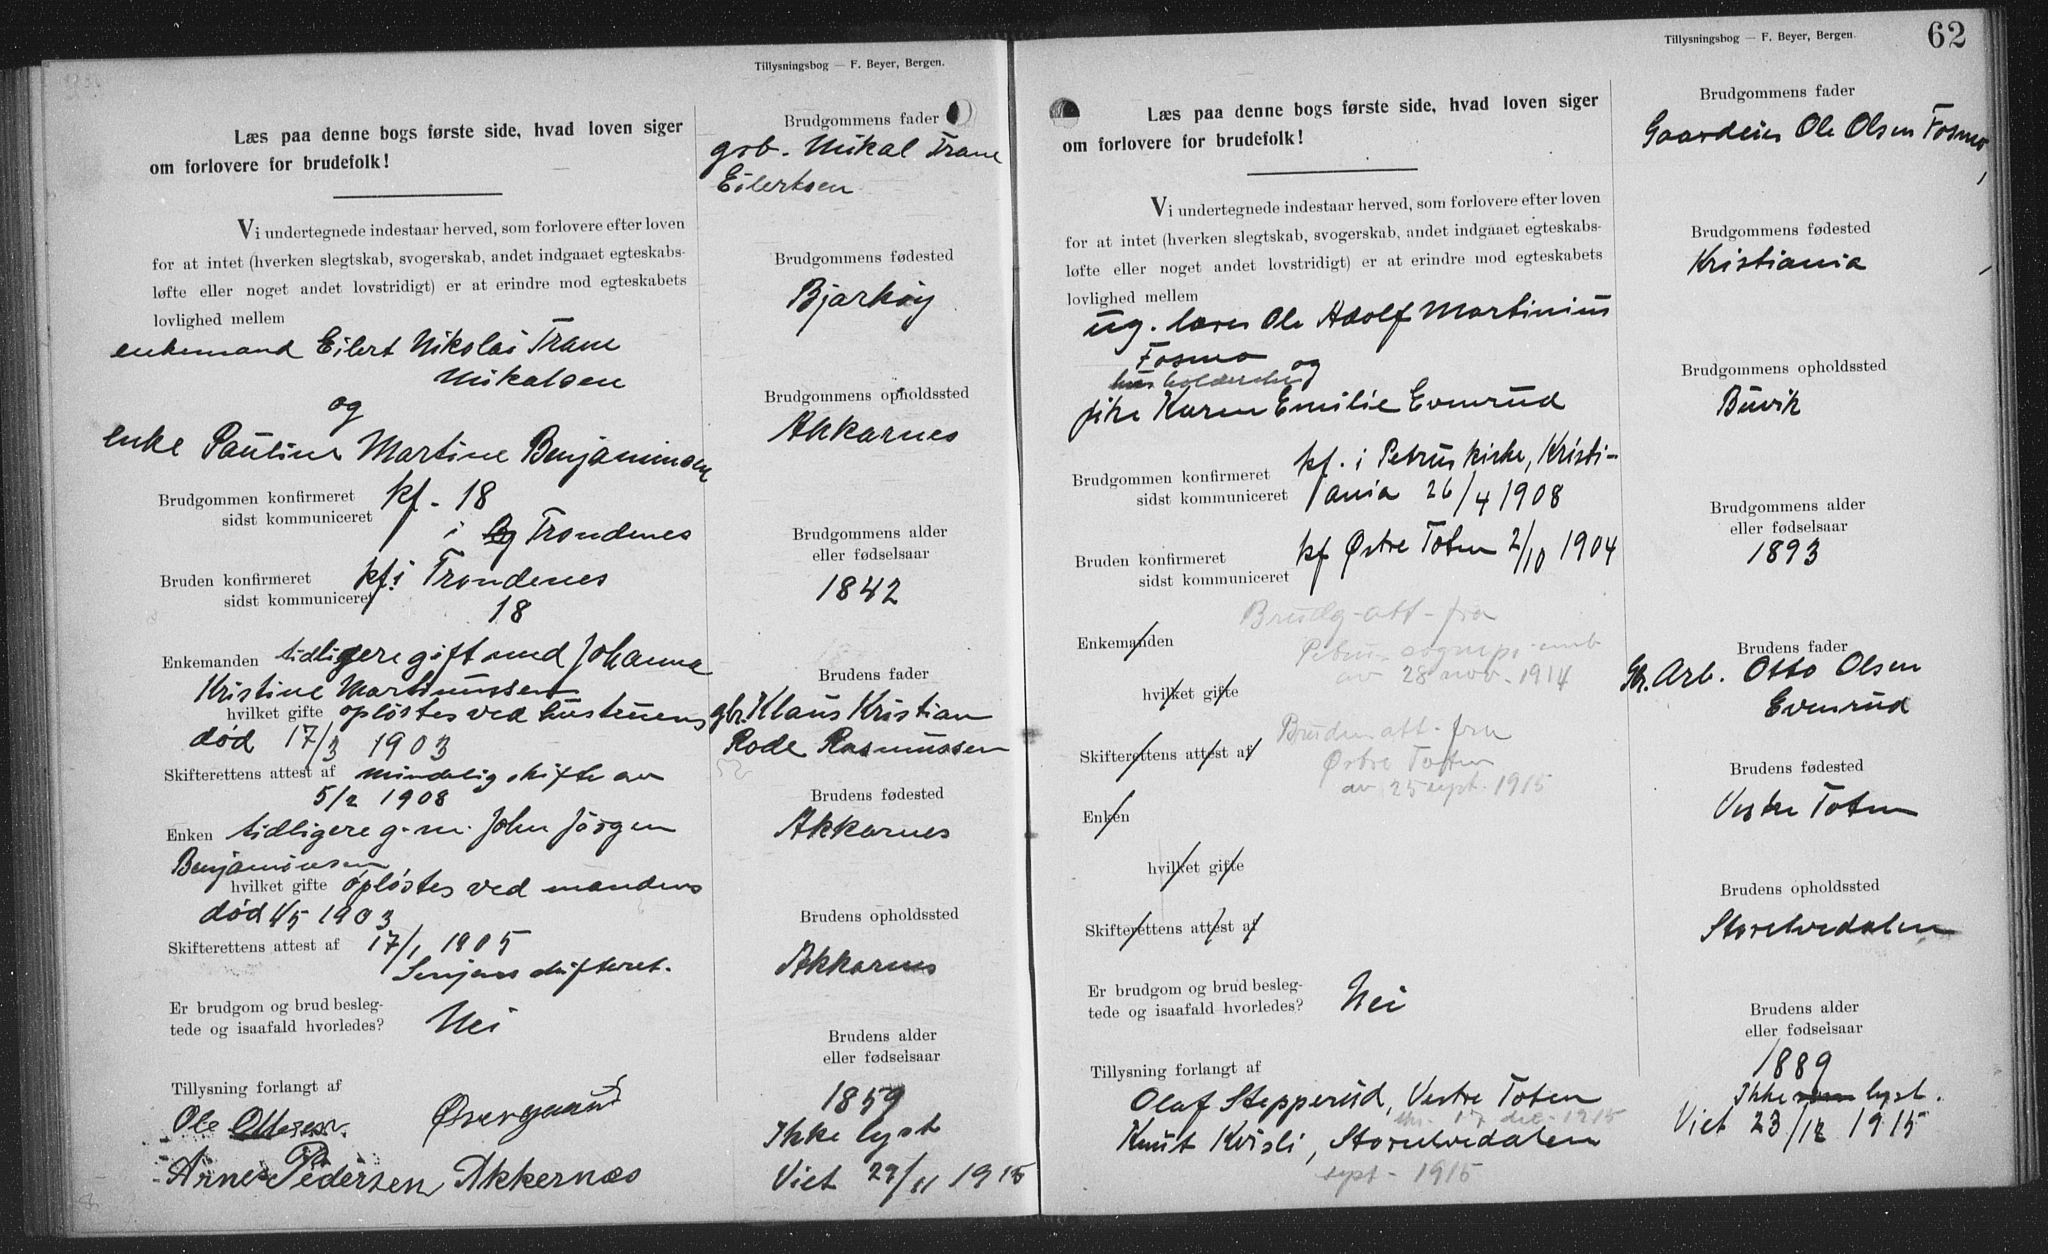 Tillysningsbog — F. Beyer, Bergen.
Læs paa denne bogs første side, hvad loven siger
om forlovere for brudefolk!
Vi undertegnede indestaar herved, som forlovere efter loven
for at intet (hverken slegtskab, svogerskab, andet indgaaet egteskabs-
løfte eller noget andet lovstridigt) er at erindre mod egteskabets
lovlighed mellem
enkemand Eilert Nikolai Trane
Mikalsen
og
enke Pauline Martine Benjaminsen
Brudgommen konfirmeret kf. 18
sidst kommuniceret i Trondenes
Bruden konfirmeret kf i Trondenes
sidst kommuniceret 18
Enkemanden tidligere gift med Johanna
Kristine Martinussen
hvilket gifte opløstes ved hustruens
død 17/3 1903
Skifterettens attest af mindelig skifte av
5/2 1908
Enken tidligere g. m. John Jørgen
Benjaminsen
hvilket gifte opløstes ved mandens
død 1/5 1903
Skifterettens attest af 17/1 1905
Senjens skifteret.
Er brudgom og brud besleg-
tede og isaafald hvorledes? Nei
Tillysning forlangt af
Ole Ottesen Øvergaard
Arne Pedersen Akkernæs
Brudgommens fader
gsb. Mikal Trane
Eilertsen
Brudgommens fødested
Bjarkøy
Brudgommens opholdssted
Akkarnes
Brudgommens alder
eller fødselsaar
1842
Brudens fader
gbr. Klaus Kristian
Rode Rasmussen
52
Brudens fødested
Akkarnes
Brudens opholdssted
Akkarnes
Brudens alder
eller fødselsaar
1859
Ikke lyst
Viet 29/11 1915
62
Tillysningsbog — F. Beyer, Bergen.
Læs paa denne bogs første side, hvad loven siger
om forlovere for brudefolk!
Vi undertegnede indestaar herved, som forlovere efter loven
for at intet (hverken slegtskab, svogerskab, andet indgaaet egteskabs-
løfte eller noget andet lovstridigt) er at erindre mod egteskabets
lovlighed mellem
ug. lærer Ole Adolf Martinius
Fosmo og
husholderske
pike Karen Emilie Evenrud
Brudgommen konfirmeret kf. i Petrus kirke, Kristi-
sidst kommuniceret ania 26/4 1908
Bruden konfirmeret kf Østre Toten 2/10 1904
sidst kommuniceret
Brudg. att. fra
Enkemanden
Petrus sognepr. emb
av 28 nov. 1914
hvilket gifte
Bruden att. fra
Skifterettens attest af
Østre Toten
av 25 sept. 1915
Enken
hvilket gifte
Skifterettens attest af
Er brudgom og brud besleg-
tede og isaafald hvorledes? Nei
Tillysning forlangt af
Olaf Stepperud, Vestre Toten
17 dec. 1915
Knut Kvisli, Storelvedalen
sept. 1915
Brudgommens fader
Gaardeier Ole Olsen Fosmo
Brudgommens fødested
Kristiania
Brudgommens opholdssted
Buvik
Brudgommens alder
eller fødselsaar
1893
Brudens fader
Gr. Arb. Otto Olsen
Evenrud
Brudens fødested
Vestre Toten
Brudens opholdssted
Storelvedalen
Brudens alder
eller fødselsaar
1889
Ikke lyst.
Viet 23/12 1915